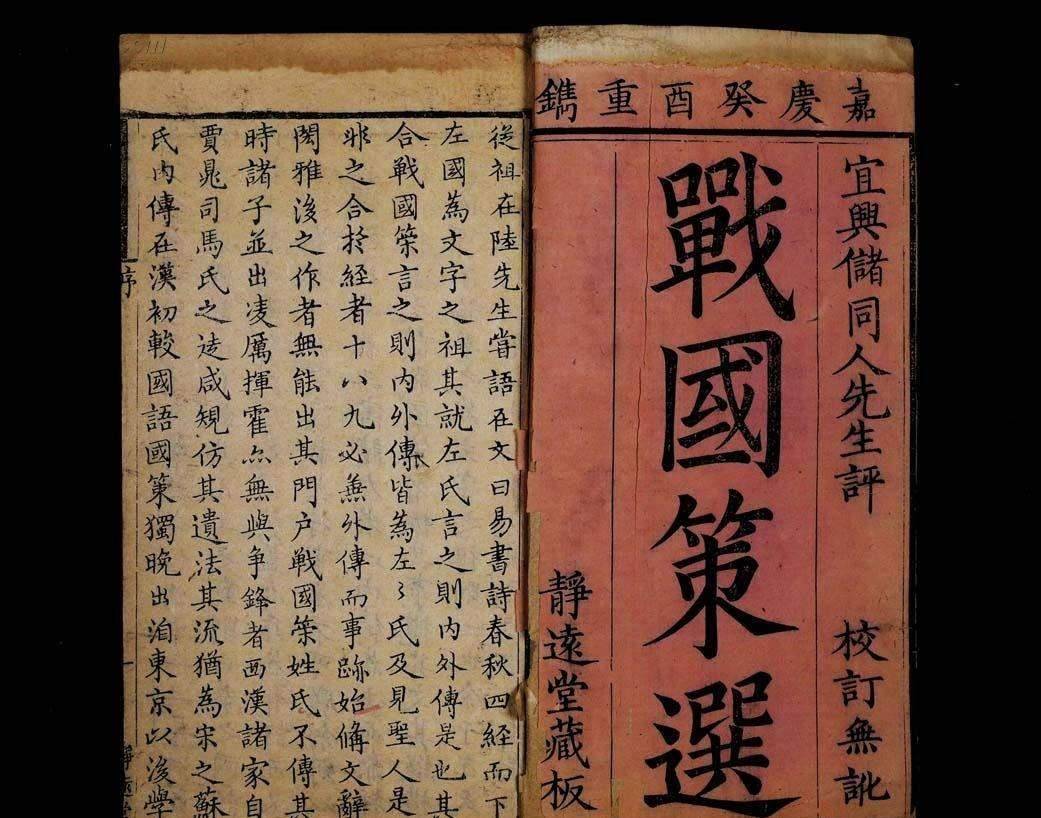 嘉慶癸酉重鐫
宜興儲同人先生評
校訂無訛
戰國策選
靜遠堂藏板
從祖在陸先生嘗語在文曰易書詩春秋四經而下
左國為文字之祖其就左氏言之則內外傳是也其
合戰國策言之則內外傳皆為左〻氏及見聖人是
非之合於經者十八九必無外傳而事跡始備文辭
閎雅後之作者無能出其門户戰國策姓氏不傳其
時諸子並出凌厲揮霍尒無與爭鋒者西漢諸家自
賈鼂司馬氏之徒咸規仿其遺法其流猶為宋之蘇
氏內傳在漢初較國語國策獨晚出洎東京以後學
序
一